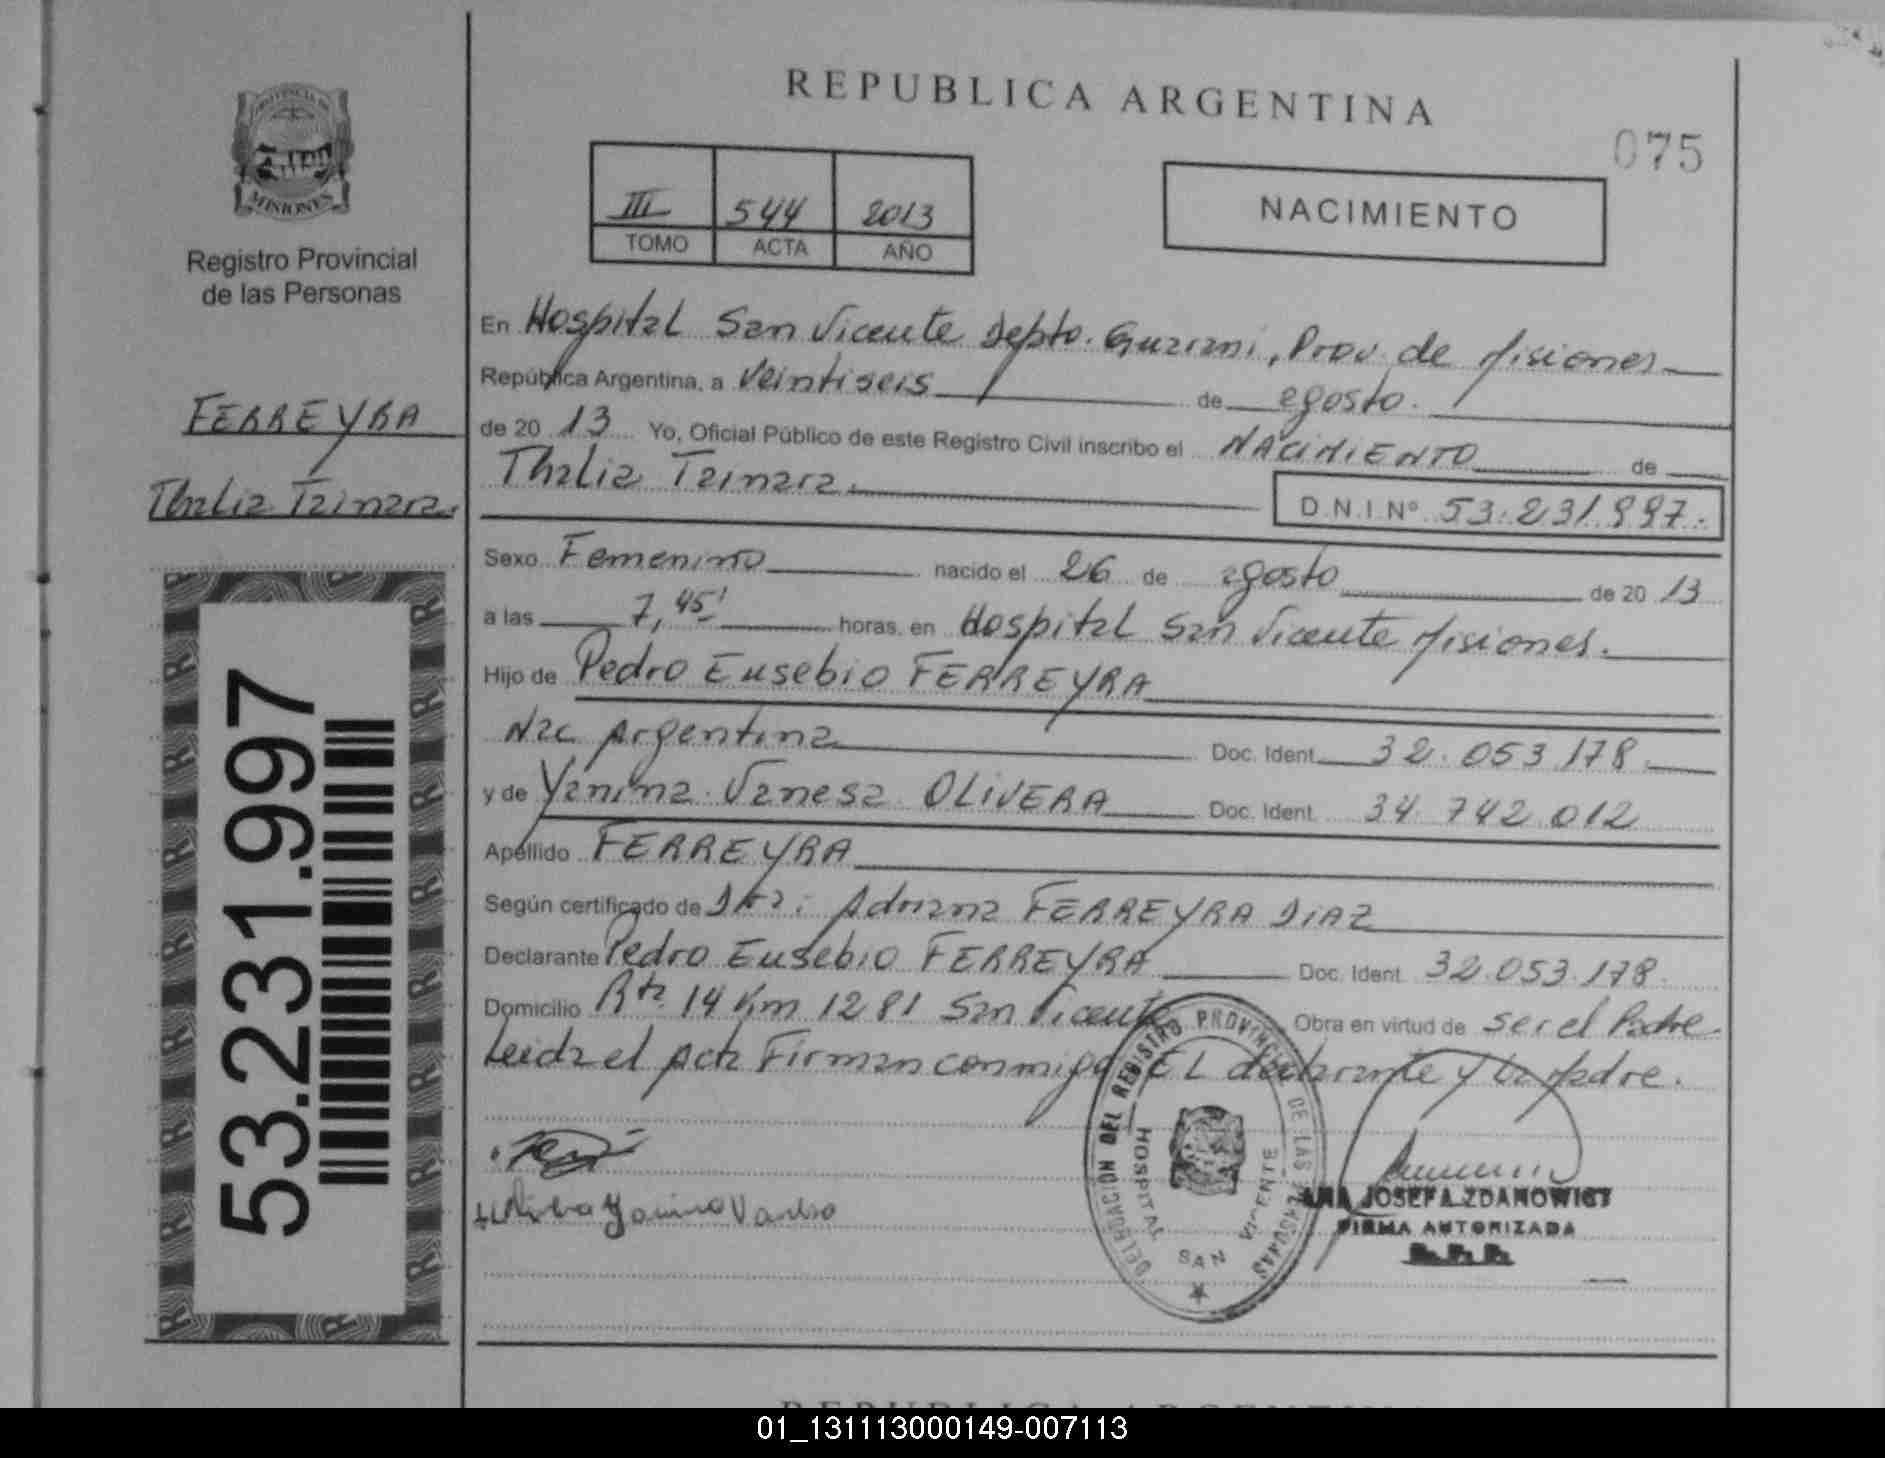 REPUBLICA ARGENTINA
075
PROVINCIA DE
MISIONES
Registro Provincial
de las Personas
III 544 2013
TOMO ACTA AÑO
NACIMIENTO
En Hospital San Vicente Depto. Guarani, Prov. de Misiones
República Argentina, a Veintiseis de agosto.
de 20 13 Yo, Oficial Público de este Registro Civil inscribo el NACIMIENTO de
Thalia Tainara.
D.N.I Nº 53.231.997.
FERREYRA
Thalia Tainara.
Sexo Femenino nacido el 26 de agosto de 20 13
a las 7,45' horas, en Hospital San Vicente Misiones.
Hijo de Pedro Eusebio FERREYRA
Nac Argentina Doc. Ident. 32.053.178.
y de Yanina Vanesa OLIVERA Doc. Ident. 34.742.012
Apellido FERREYRA
Según certificado de Dra: Adriana FERREYRA DIAZ
Declarante Pedro Eusebio FERREYRA Doc. Ident. 32.053.178.
Domicilio Rta 14 Km 1281 San Vicente Obra en virtud de ser el Padre
Leida el Acta Firman conmigo EL declarante y la Madre.
53.231.997
DELEGACION DEL REGISTRO PROVINCIAL DE LAS PERSONAS
HOSPITAL SAN VICENTE
Yanina Vanesa
ANA JOSEFA ZDANOWICZ
FIRMA AUTORIZADA
R.P.P.
REPUBLICA ARGENTINA
01_131113000149-007113